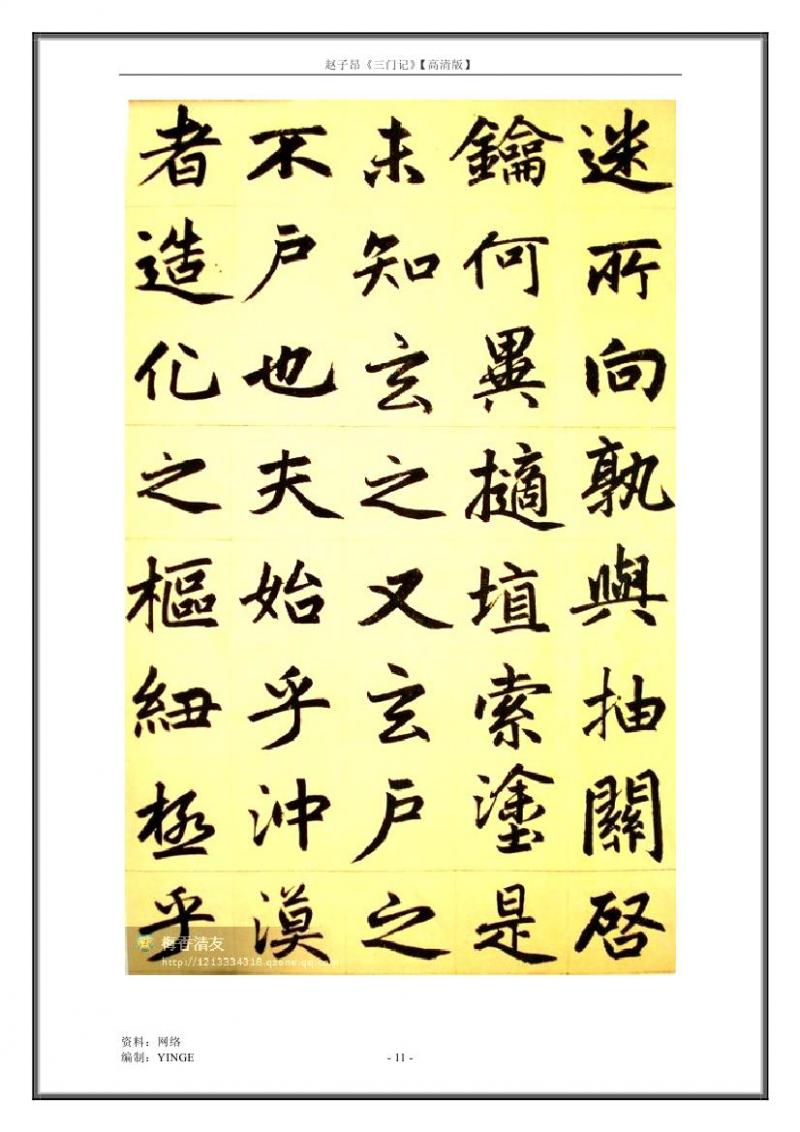 赵子昂《三门记》【高清版】
迷所向孰與抽關啓
鑰何異擿埴索塗是
未知玄之又玄户之
不户也夫始乎沖漠
者造化之樞紐極乎
梅香清友
http://1213334318.qzone.qq.com
资料：网络
编制：YINGE
- 11 -